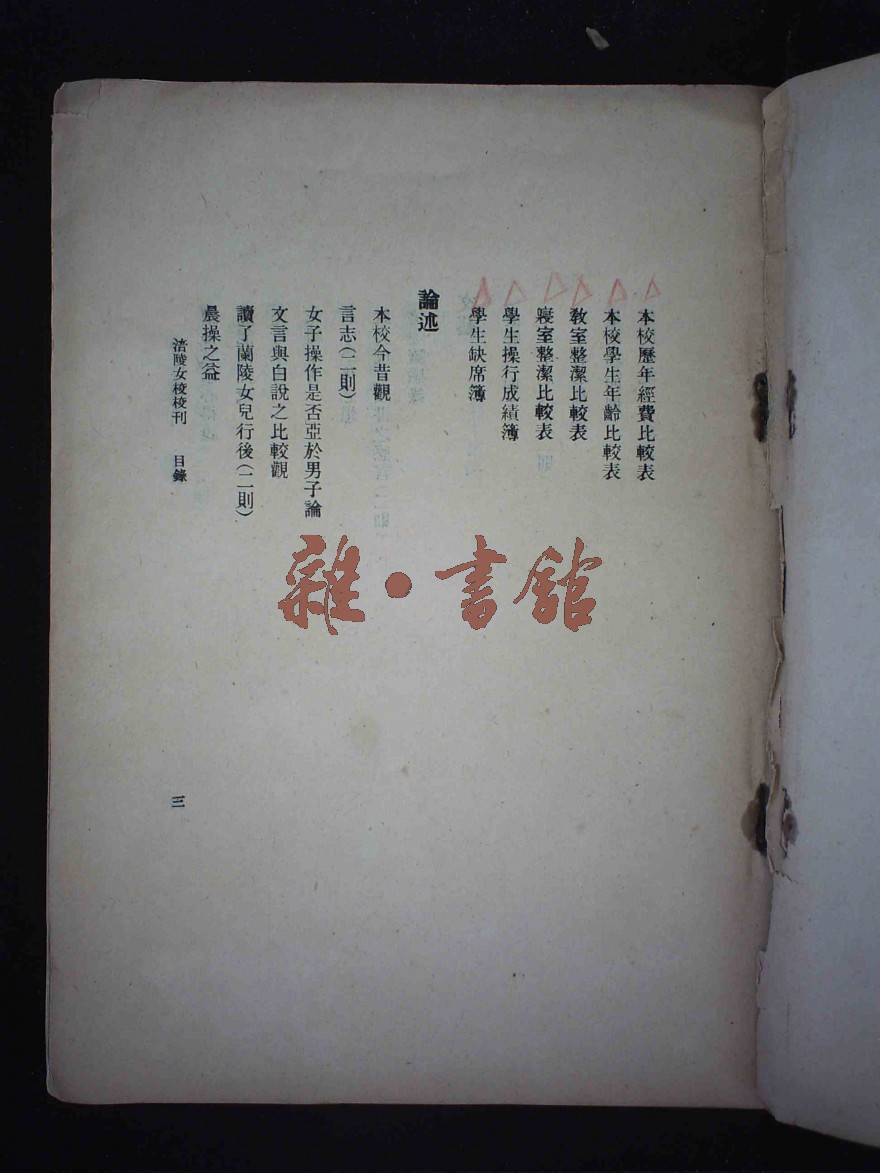 本校歷年經費比較表
本校學生年齡比較表
敎室整潔比較表
寢室整潔比較表
學生操行成績簿
學生缺席簿
論述
本校今昔觀
言志（二則）
女子操作是否亞於男子論
文言與白說之比較觀
讀了蘭陵女兒行後（二則）
晨操之益
涪陵女校校刊 目錄
三
雜·書館